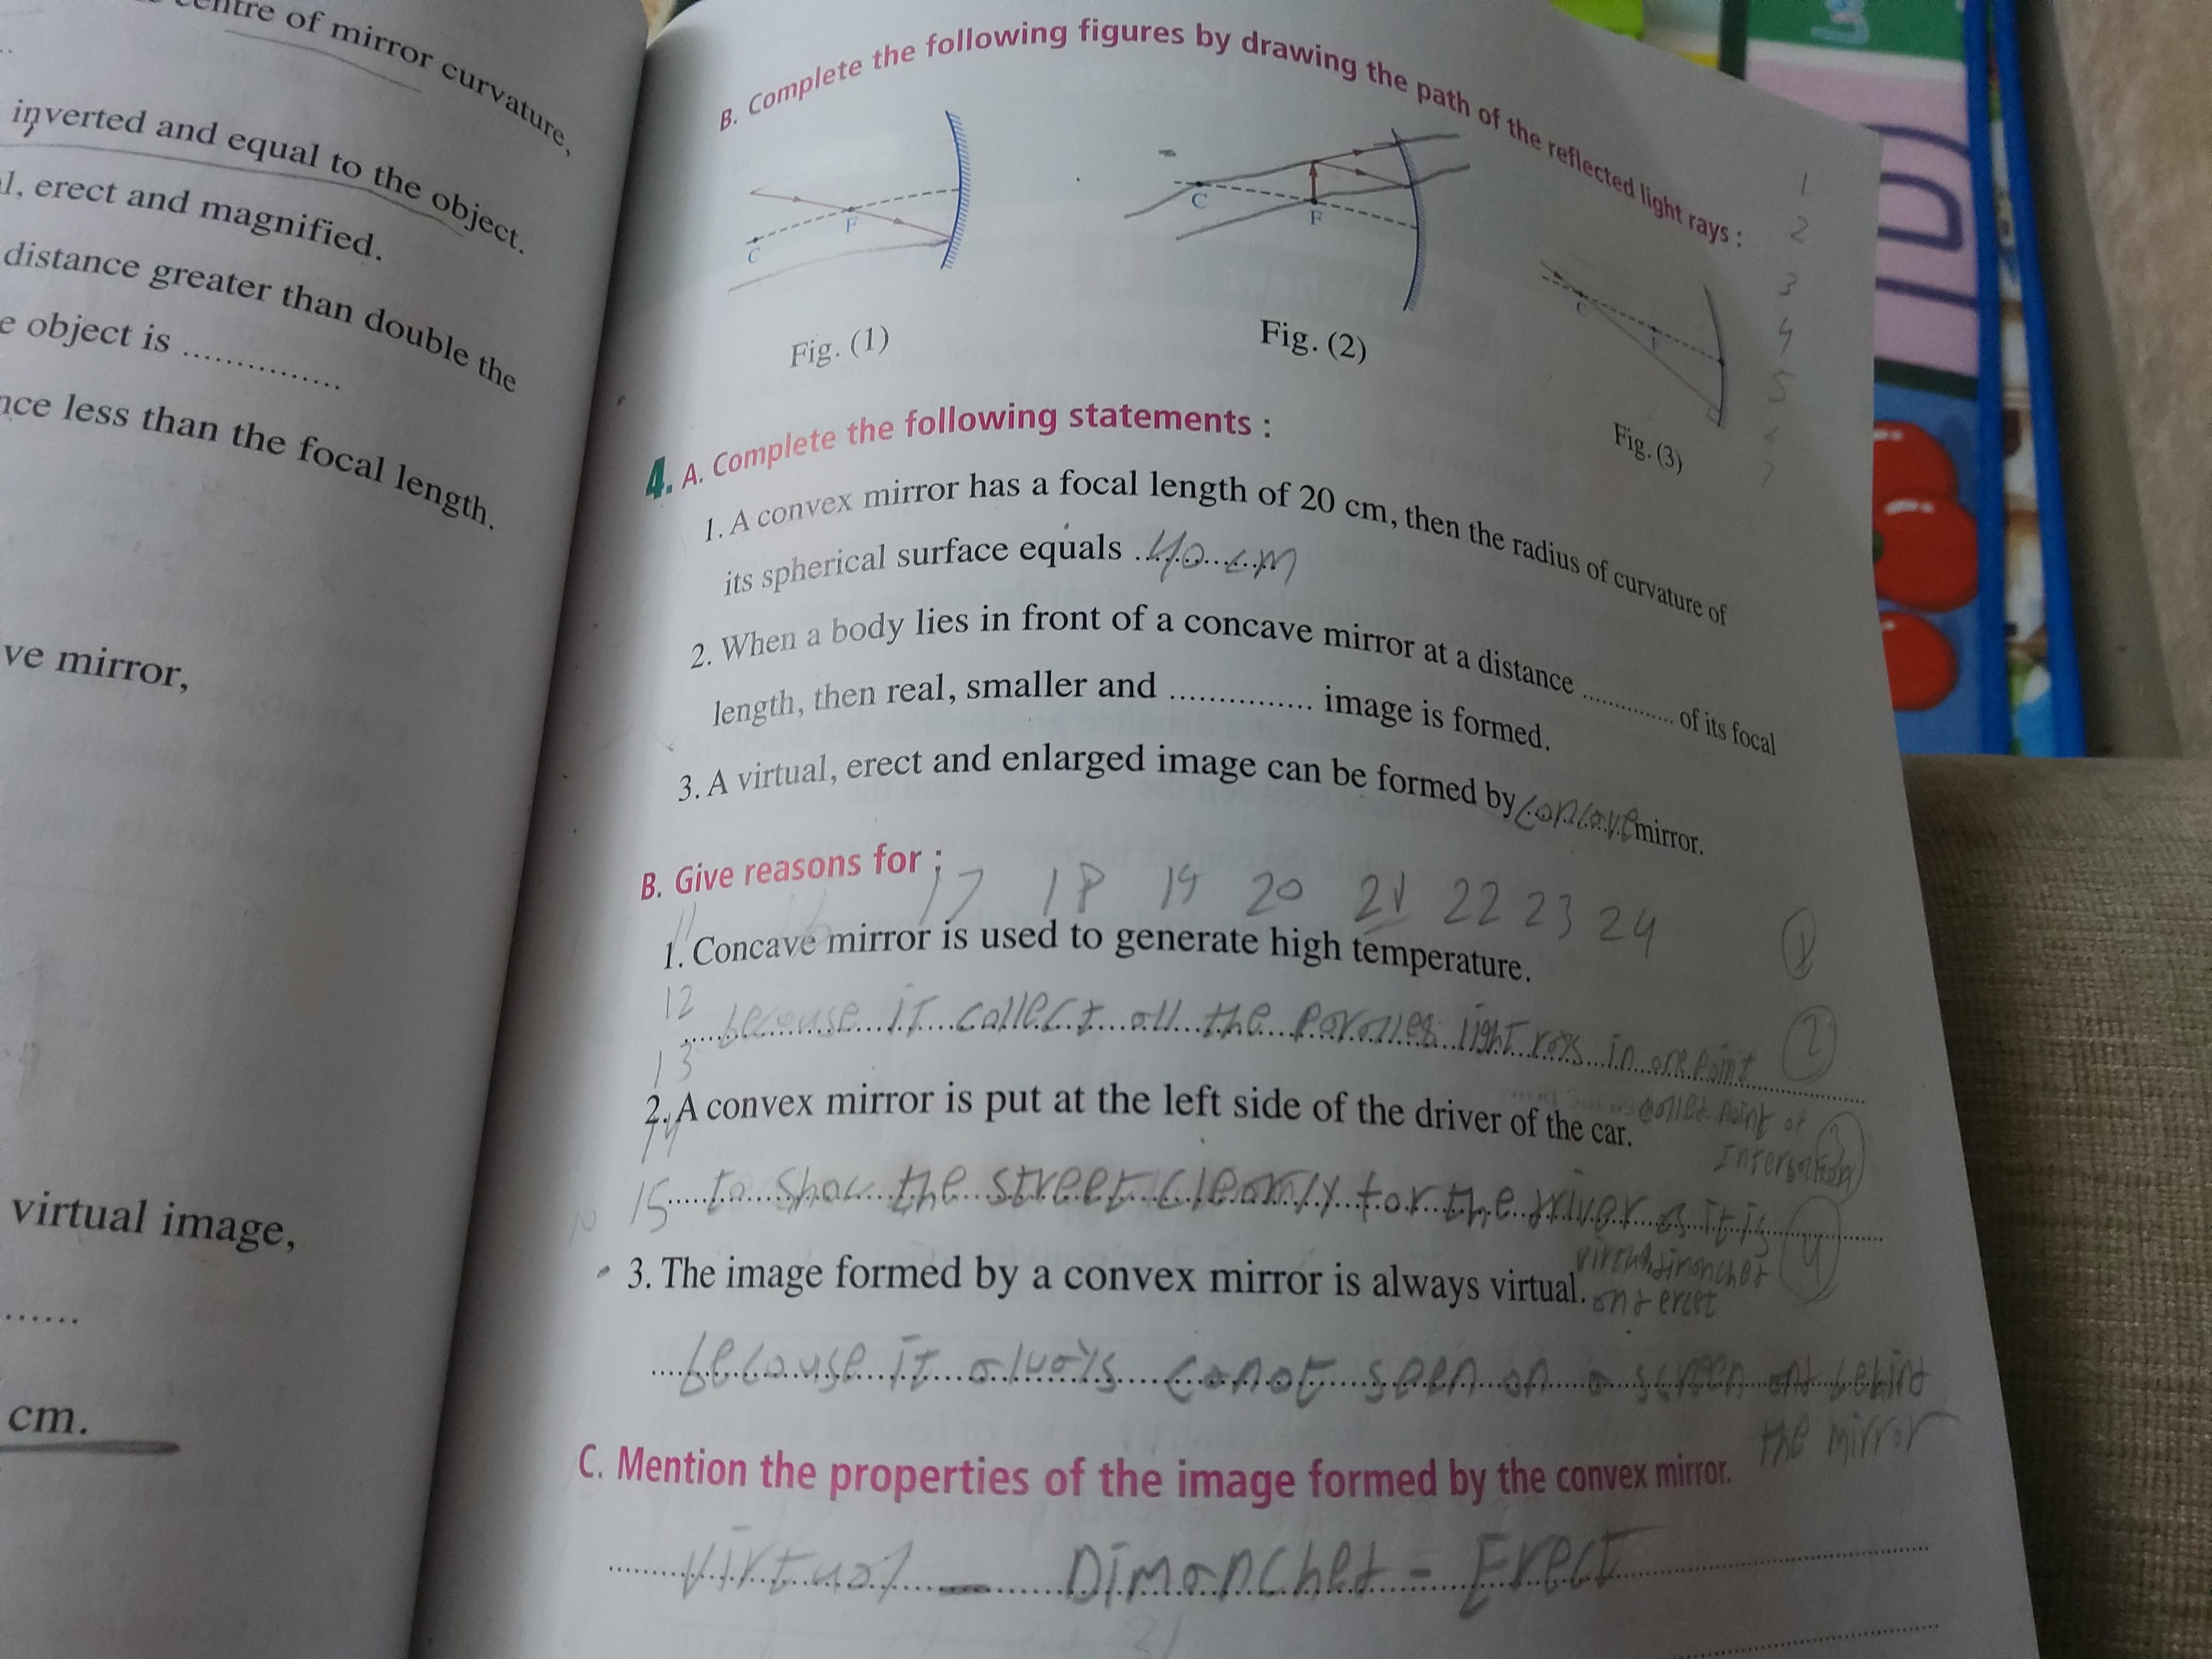 centre of mirror curvature,
inverted and equal to the object.
l, erect and magnified.
distance greater than double the
e object is ..............
nce less than the focal length.
ve mirror,
virtual image,
......
cm.
B. Complete the following figures by drawing the path of the reflected light rays :
C
F
Fig. (1)
C
F
Fig. (2)
C
F
Fig. (3)
1
2
3
4
5
7
4. A. Complete the following statements :
1. A convex mirror has a focal length of 20 cm, then the radius of curvature of
its spherical surface equals 40 cm
2. When a body lies in front of a concave mirror at a distance .............. of its focal
length, then real, smaller and .............. image is formed.
3. A virtual, erect and enlarged image can be formed by concave mirror.
B. Give reasons for :
11 17 18 19 20 21 22 23 24
1. Concave mirror is used to generate high temperature.
1
12
because it collect all the parallel light rays in one point
2
13
2. A convex mirror is put at the left side of the driver of the car.
called point of
3
14
10 15 to show the street clearly for the driver as it is
4
3. The image formed by a convex mirror is always virtual.
and erect
because it always canot seen on a screen and behind
the mirror
C. Mention the properties of the image formed by the convex mirror.
Virtual - Dimanched - Erect
21